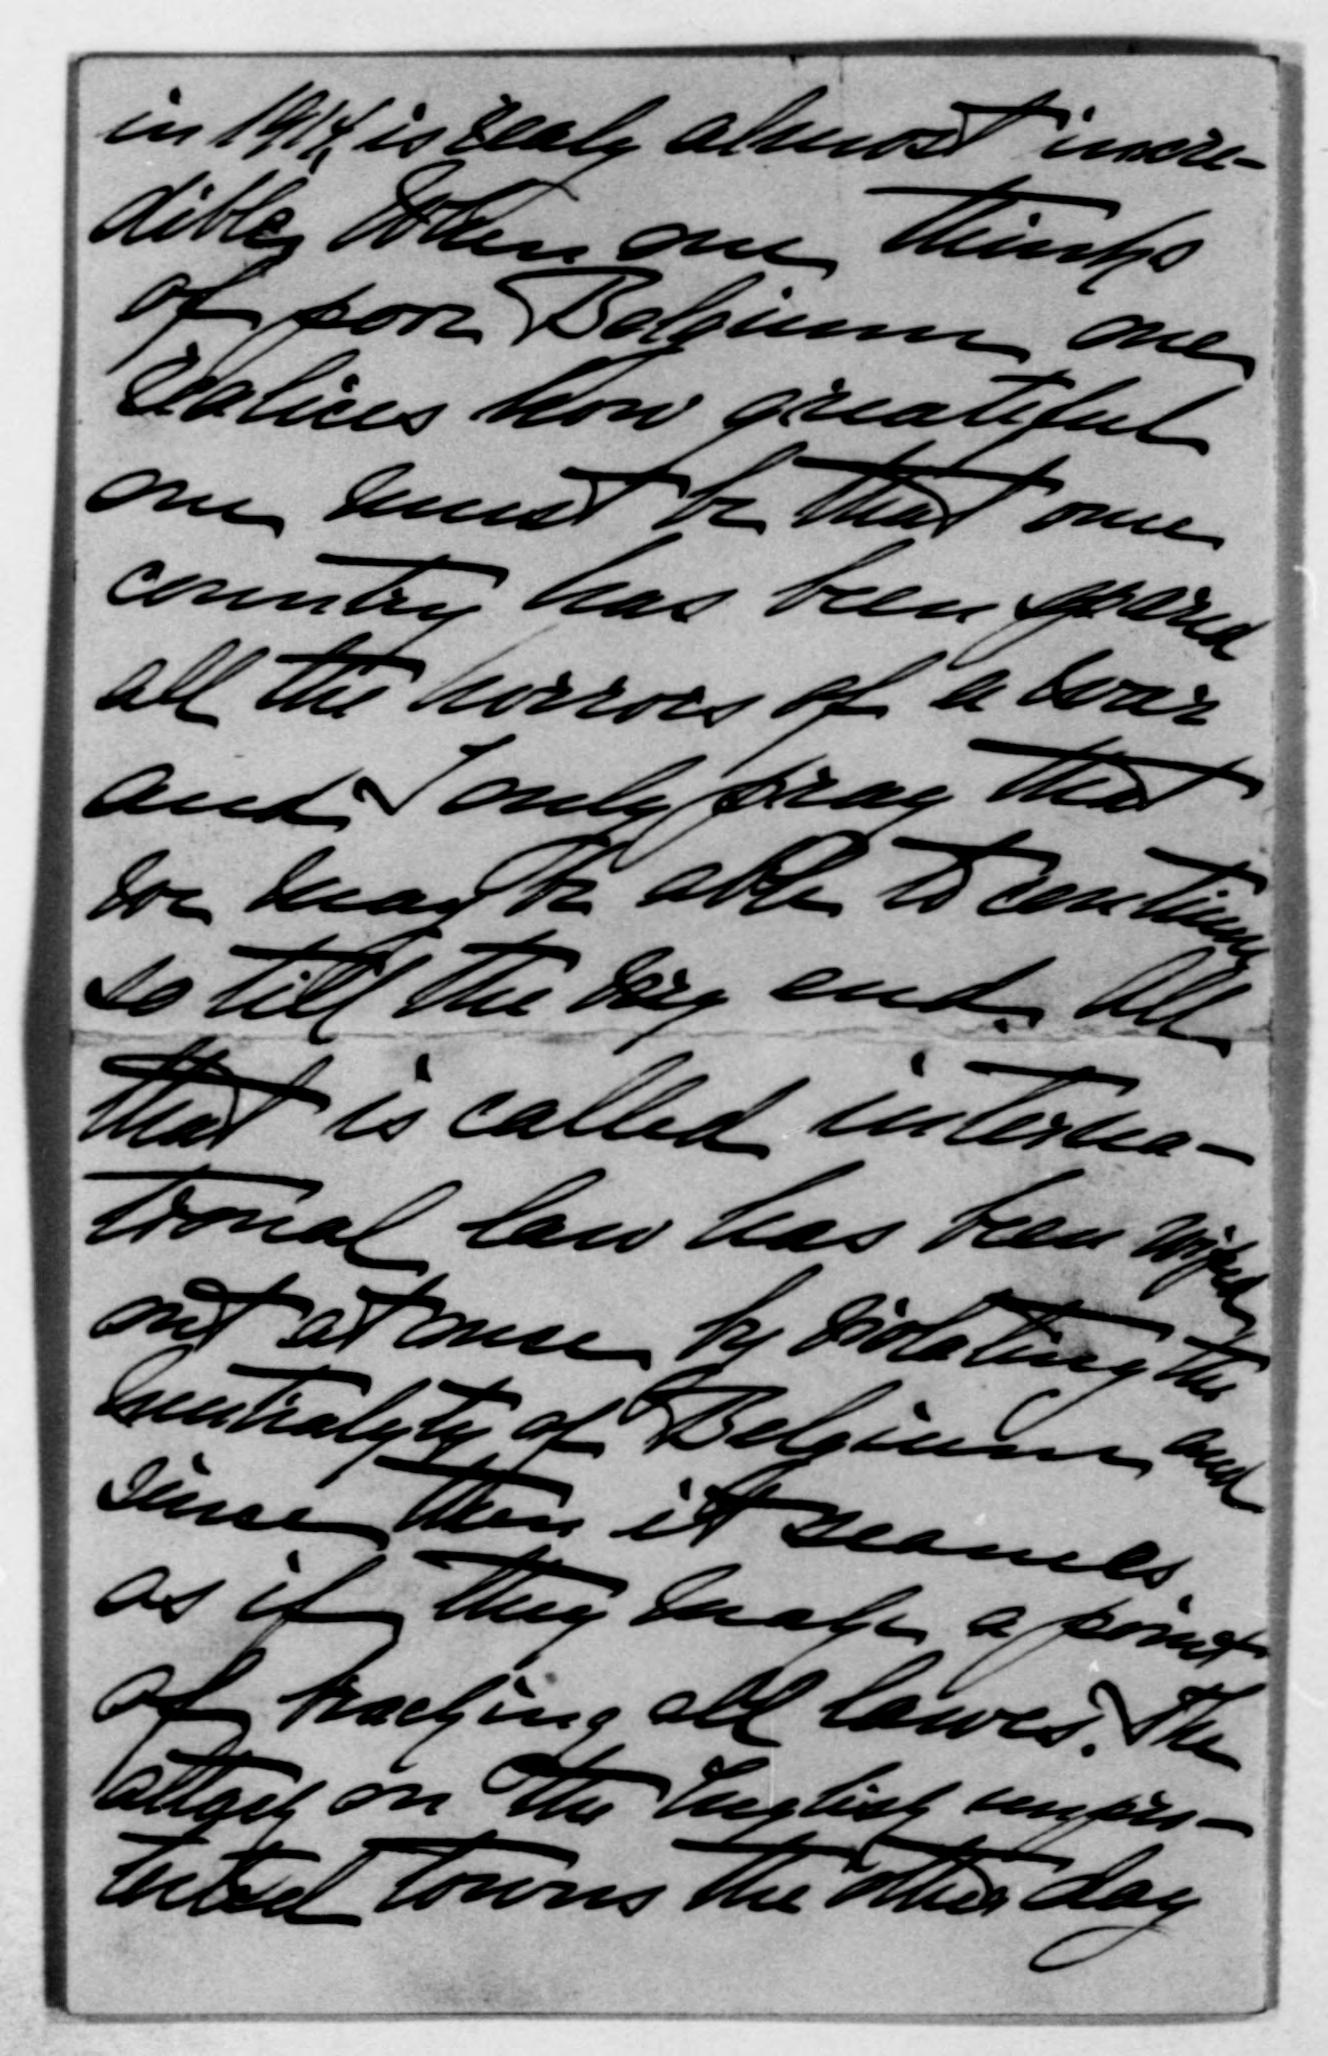 in 1914, is realy almost incre-
dible, When one thinks
of poor Belgium one
realices how greateful
one must be that one
country has been spared
all the horrors of a war
and I only pray that
we may be able to continue
so till the very end. All
that is called interna-
tional law has been wiped
out at once by violating the
neutralyty of Belgium and
since then it seames
as if they make a point
of bracking all lawes. The
attack on the English unpro-
tected towns the other day